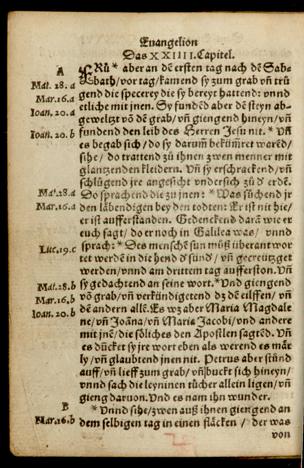 Euangelion
Das XXIIII. Capitel.
A
FRü * aber an dē ersten tag nach dē Sab-
bath/vor tag/kamend sy zum grab vñ trü
Mat. 28. a
gend die specerey die sy bereyt hattend: vnnd
Mar. 16. a
etliche mit jnen. Sy fundēd aber dē steyn ab-
Ioan. 20. a
geweltzt vō dē grab/vñ giengend hineyn/vñ
Ioan. 20. b
fundend den leib des Herren Jesu nit. * Vñ
es begab sich/do sy darumb bekümret warēd/
sihe/do trattend zů ihnen zwen menner mit
glantzenden kleidern. Vñ sy erschrackend/vñ
schlůgend jre angesicht vndersich zů d' erdē.
Mat. 28. a
Do sprachend die zů jnen: * Was sůchend jr
Mar. 16. a
den läbendigen bey den todten: Er ist nit hie/
er ist aufferstanden. Gedenckend darā wie er
euch sagt/do er noch in Galilea was/ vnnd
Luc. 19. c
sprach: * Des menschē sun můß überantwor
tet werdē in die hend d' sünd/ vñ gecreützget
werden/vnnd am drittem tag aufferston. Vñ
Mat. 28. b
sy gedachtend an seine wort. * Vnd giengend
Mar. 16. b
vō grab/vñ verkündigetend dz dē eilffen/ vñ
Ioan. 20. b
dē andern allē. Es wz aber Maria Magdale
ne/vñ Joāna/vñ Maria Jacobi/vnd andere
mit jnē/die sōliches den Apostlen sagtēd. Vñ
es dücket sy jre wort eben als werend es mär
ly/vñ glaubtend jnen nit. Petrus aber stůnd
auff/vñ lieff zum grab/vñ buckt sich hineyn/
vnnd sach die leyninen tücher allein ligen/vñ
gieng daruon. Vnd es nam ihn wunder.
B
* Vnnd sihe/zwen auß ihnen giengend an
Mar. 16. b
dem selbigen tag in einen fläcken / der was
von